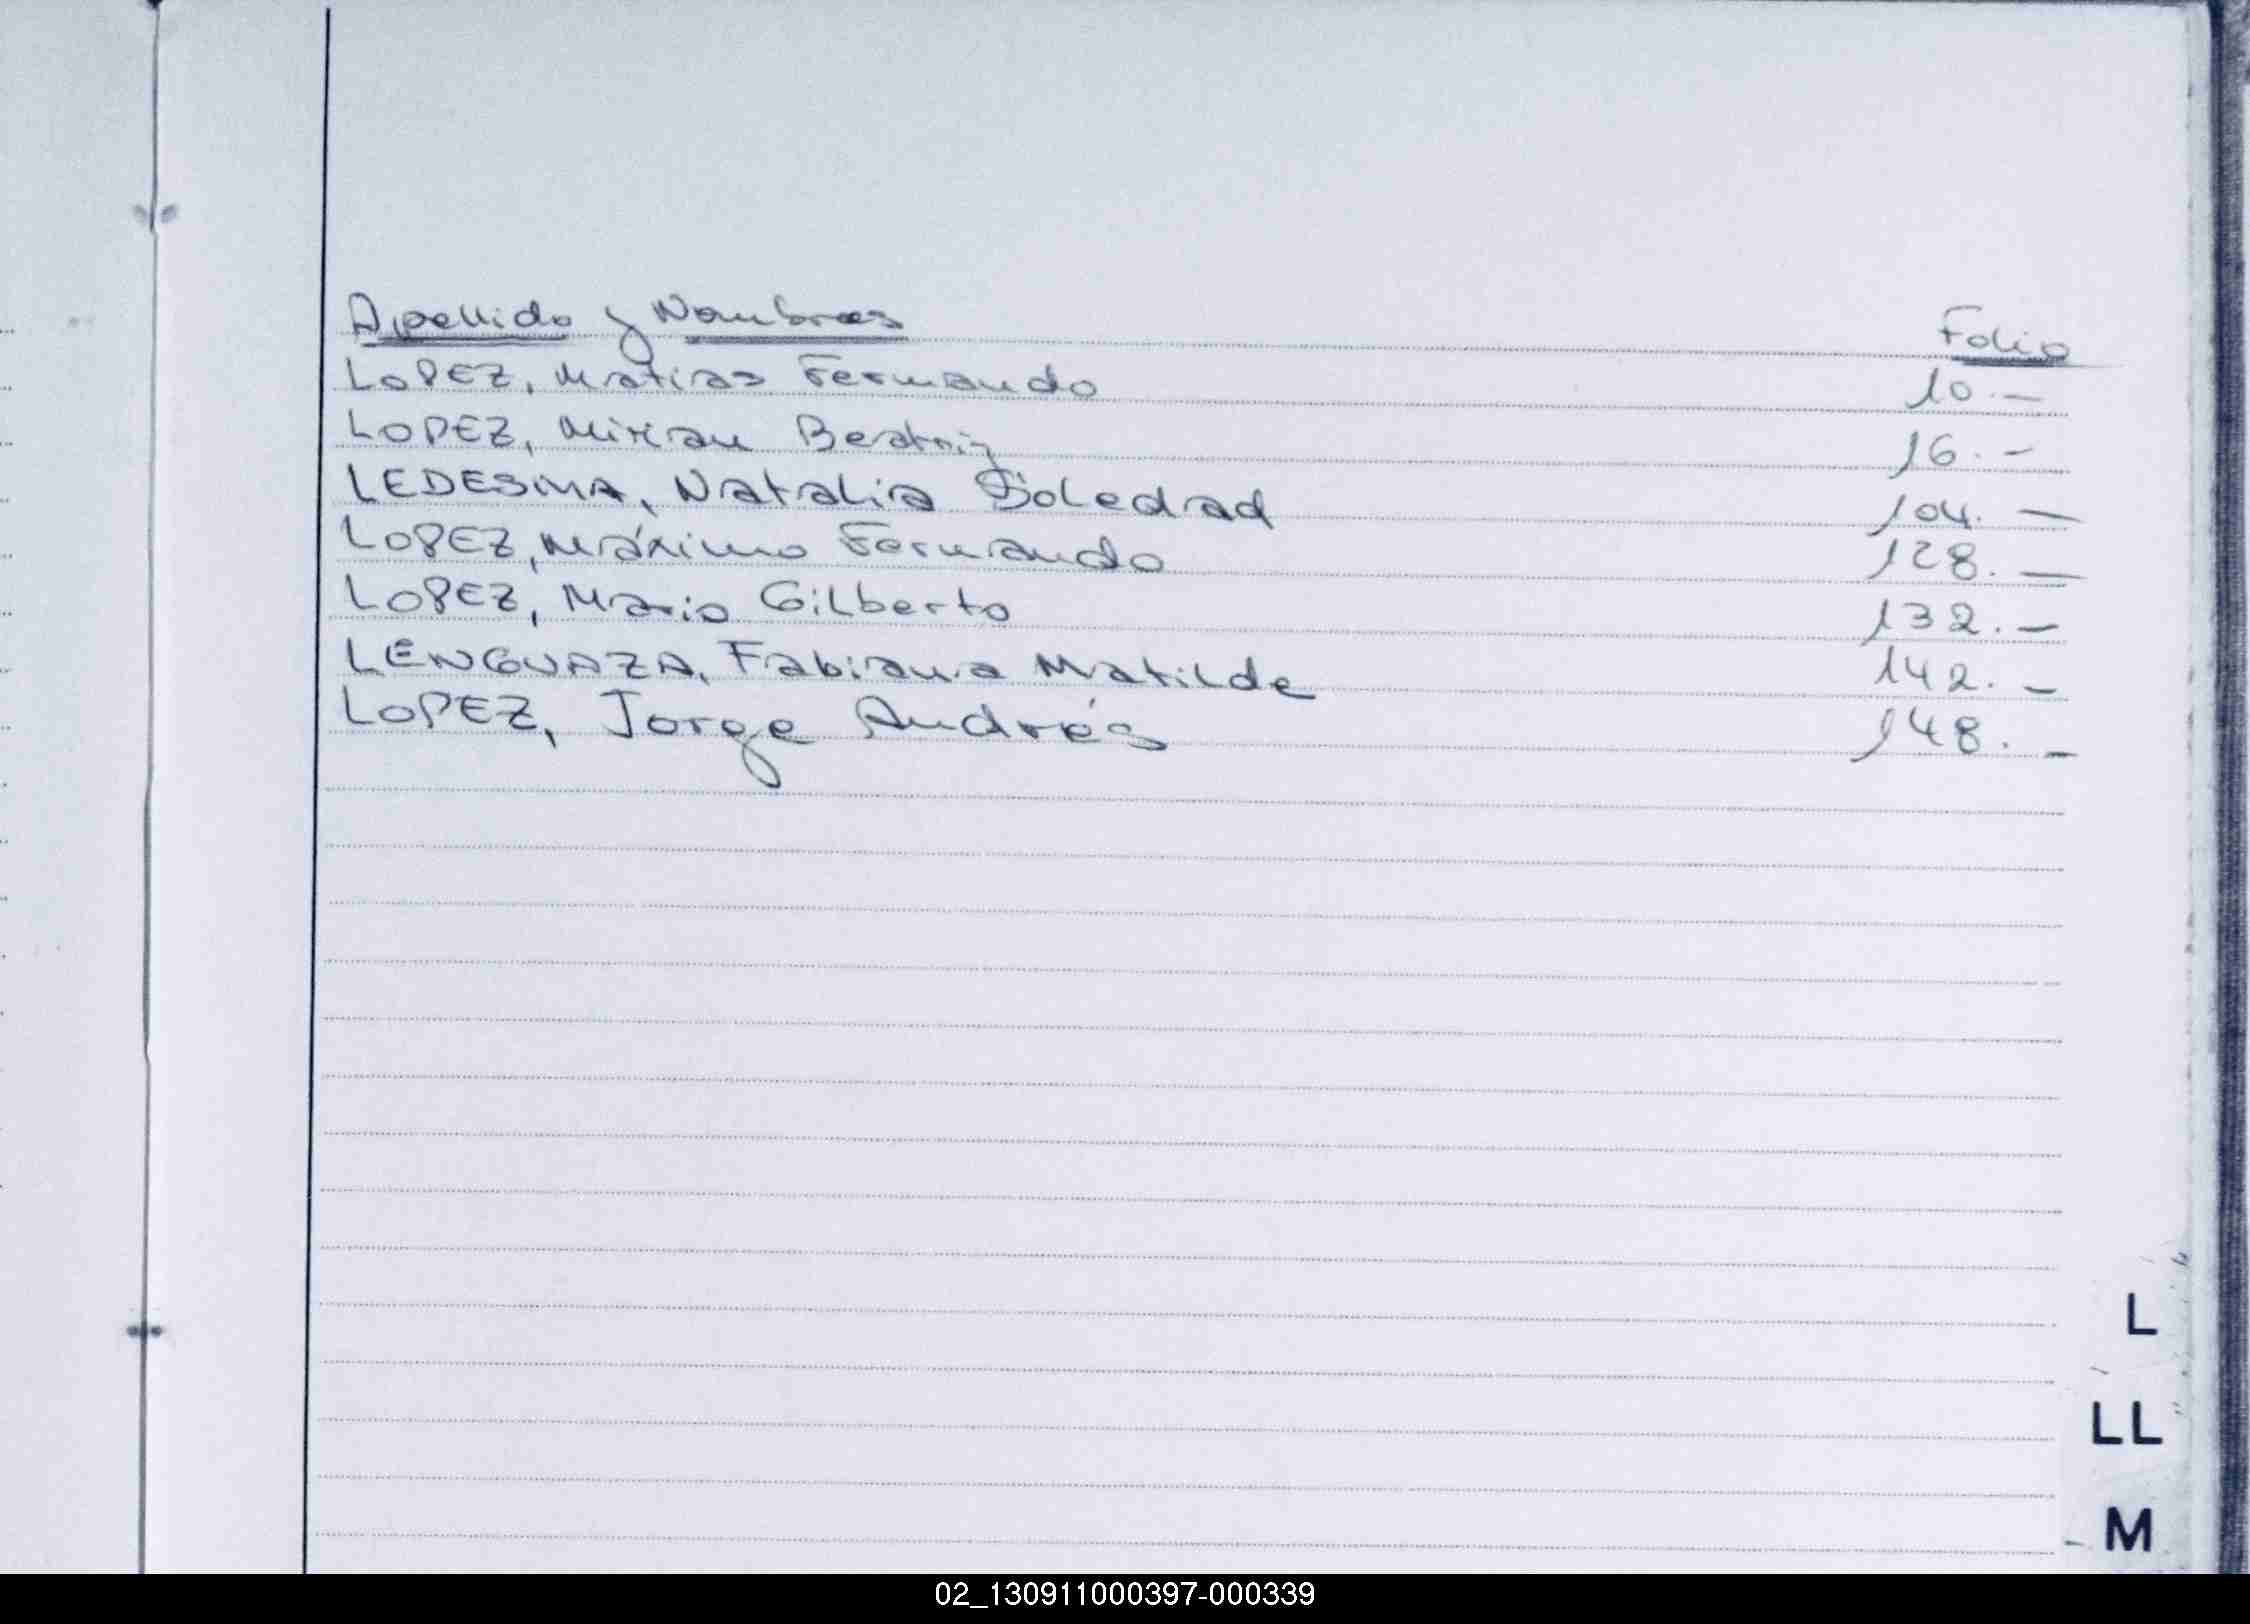 Apellido y Nombres Folio
LOPEZ, Matias Fernando 10.—
LOPEZ, Mirian Beatriz 16.—
LEDESMA, Natalia Soledad 104.—
LOPEZ, Máximo Fernando 128.—
LOPEZ, Mario Gilberto 132.—
LENGUAZA, Fabiana Matilde 142.—
LOPEZ, Jorge Andrés 148.—
L
LL
M
02_130911000397-000339